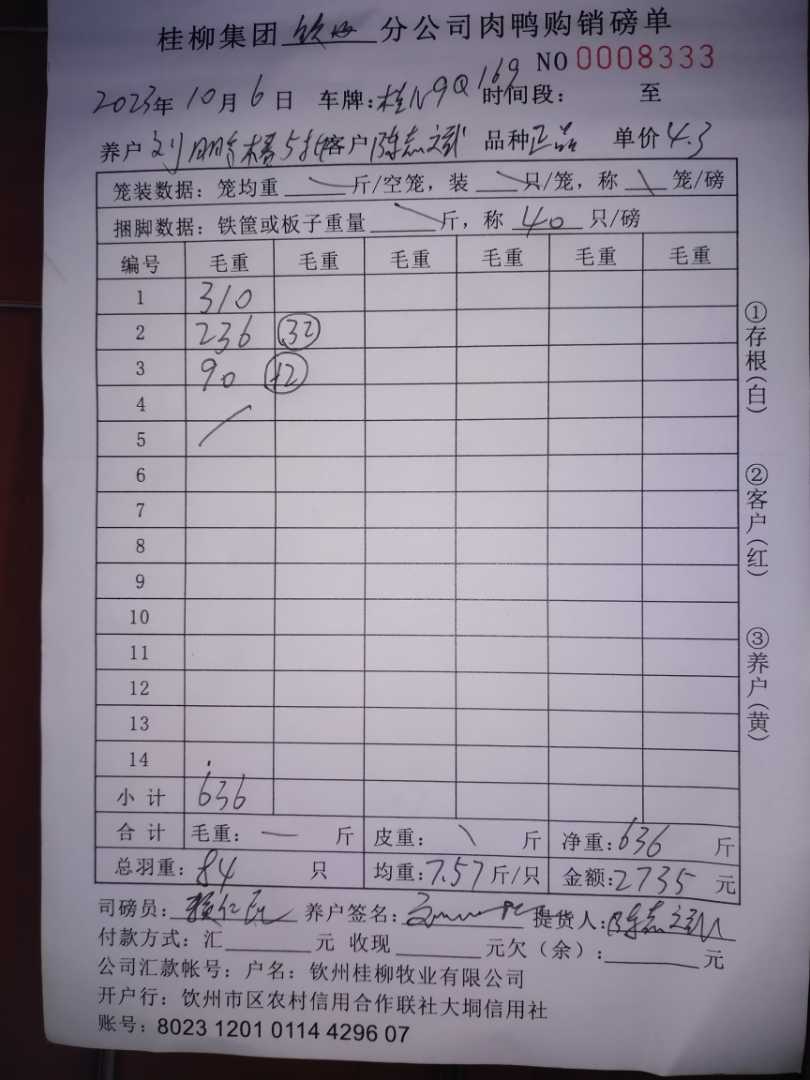 桂柳集团 钦州 分公司肉鸭购销磅单
NO 0008333
2023年 10月 6日 车牌:桂N9Q169 时间段: 至
养户 刘 客户 陈志斌 品种 正品 单价 4.3
笼装数据: 笼均重 斤/空笼, 装 只/笼, 称 笼/磅
捆脚数据: 铁筐或板子重量 斤, 称 40 只/磅
编号 毛重 毛重 毛重 毛重 毛重 毛重
1 310
2 236 32
3 90 12
4
5
6
7
8
9
10
11
12
13
14
小 计 636
合 计 毛重: 一 斤 皮重: 斤 净重: 636 斤
总羽重: 84 只 均重: 7.57 斤/只 金额: 2735 元
司磅员: 养户签名: 提货人: 陈志斌
付款方式: 汇 元 收现 元欠(余): 元
公司汇款帐号: 户名: 钦州桂柳牧业有限公司
开户行: 钦州市区农村信用合作联社大垌信用社
账号: 8023 1201 0114 4296 07
①存根(白)
②客户(红)
③养户(黄)